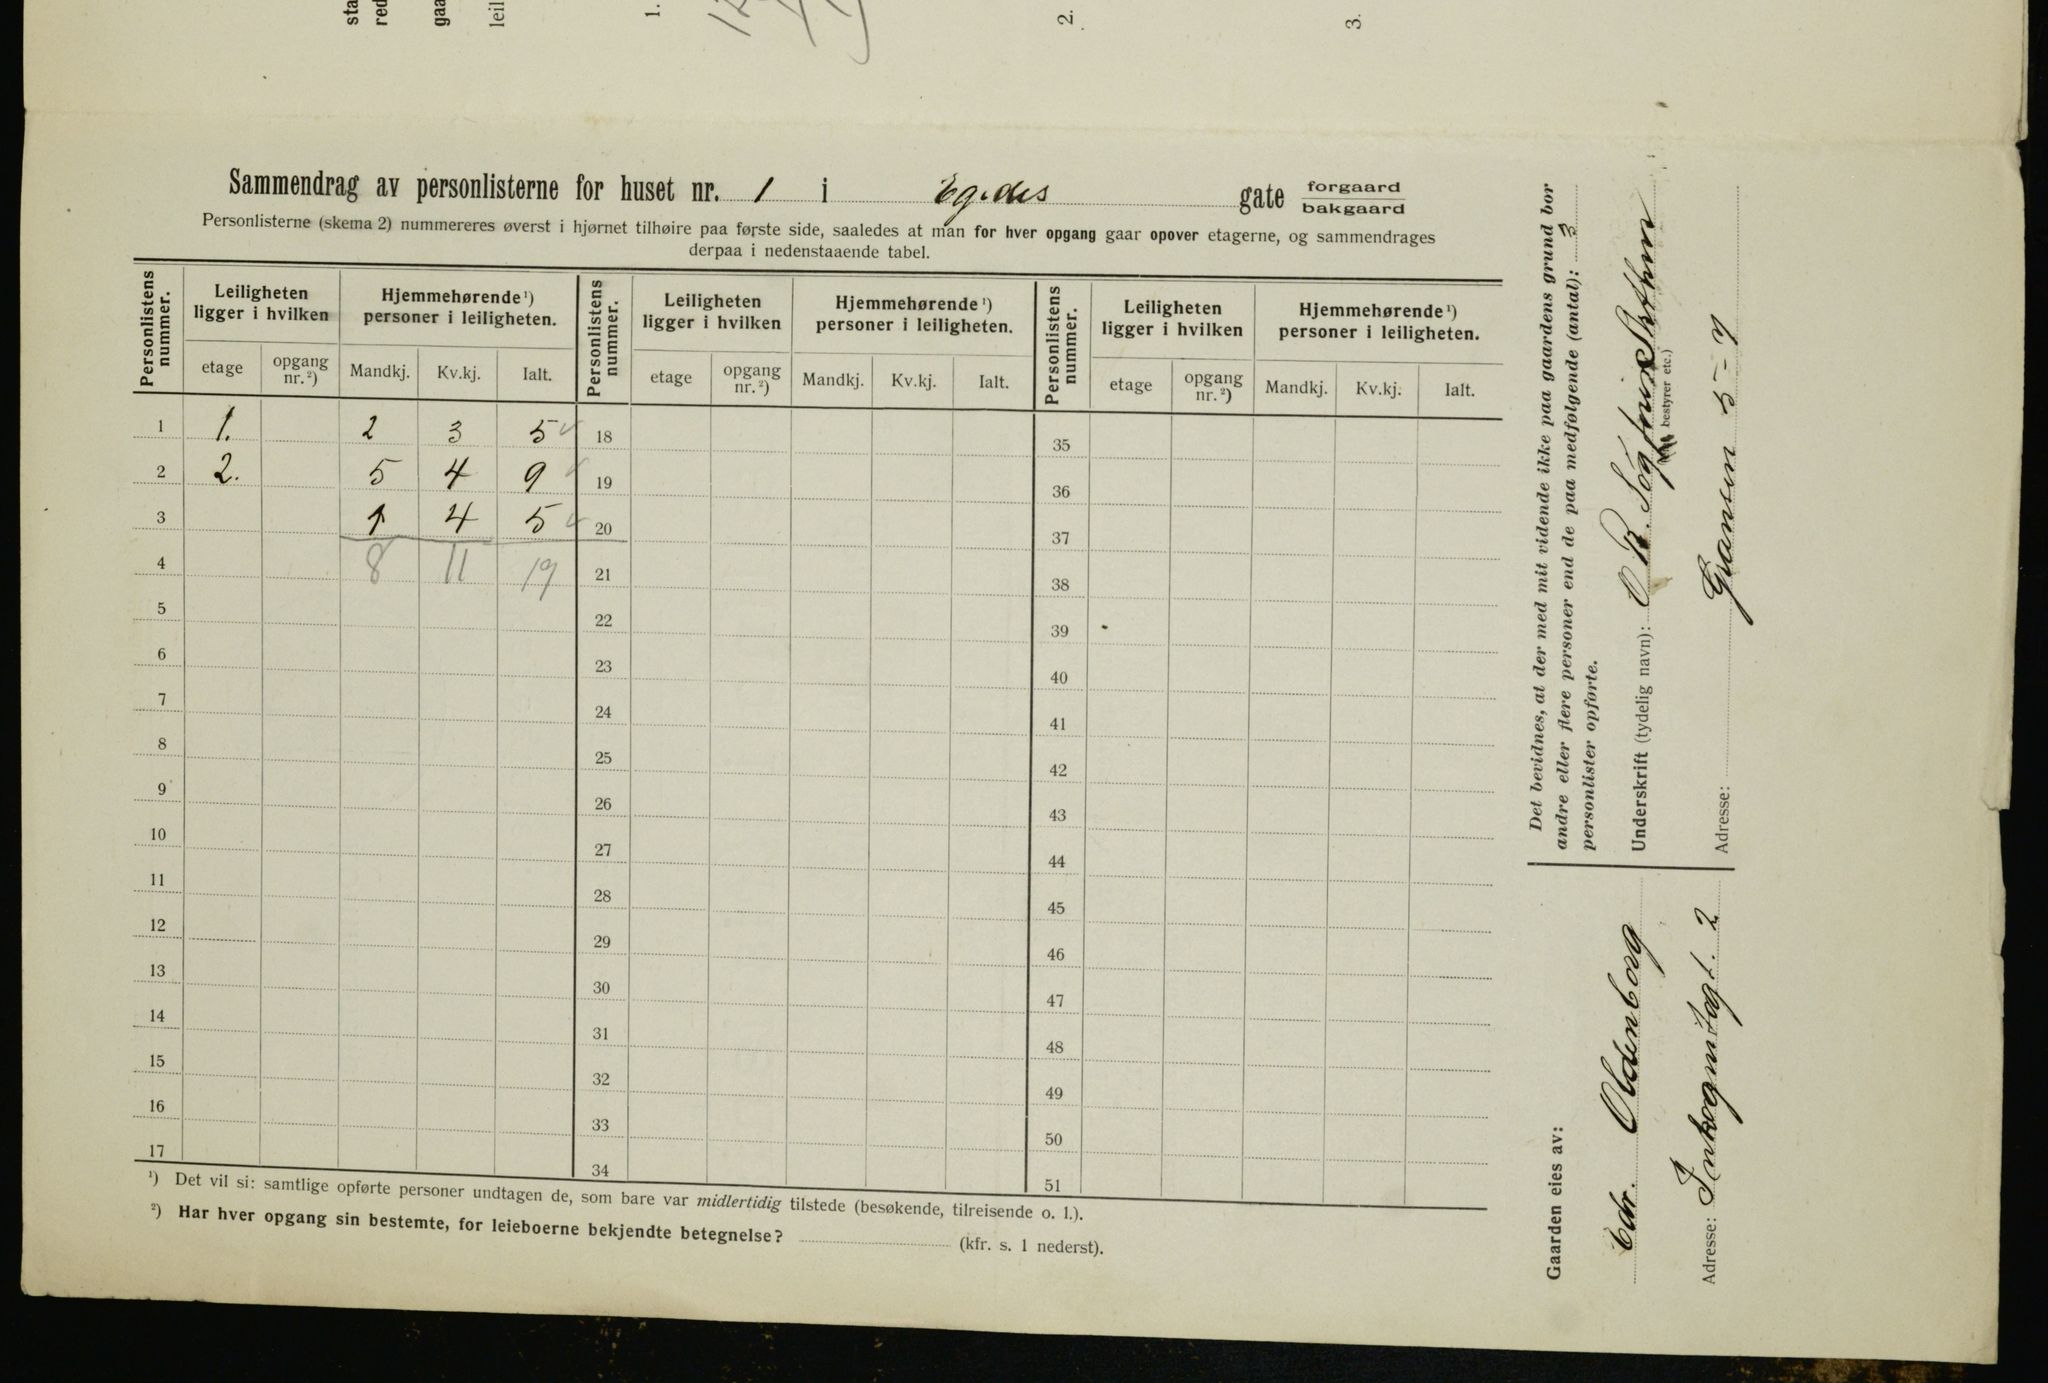 sta
red
gaa
leil
1.
2.
3.
Sammendrag av personlisterne for huset nr. 1 i Egedes gate forgaard
bakgaard
Personlisterne (skema 2) nummereres øverst i hjørnet tilhøire paa første side, saaledes at man for hver opgang gaar opover etagerne, og sammendrages
derpaa i nedenstaaende tabel.
Personlistens nummer. Leiligheten ligger i hvilken Hjemmehørende ¹) personer i leiligheten. Personlistens nummer. Leiligheten ligger i hvilken Hjemmehørende ¹) personer i leiligheten. Personlistens nummer. Leiligheten ligger i hvilken Hjemmehørende ¹) personer i leiligheten.
etage opgang nr. ²) Mandkj. Kv.kj. Ialt. etage opgang nr. ²) Mandkj. Kv.kj. Ialt. etage opgang nr. ²) Mandkj. Kv.kj. Ialt.
1 1. 2 3 5 18 35
2 2. 5 4 9 19 36
3 1 4 5 20 37
4 8 11 19 21 38
5 22 39
6 23 40
7 24 41
8 25 42
9 26 43
10 27 44
11 28 45
12 29 46
13 30 47
14 31 48
15 32 49
16 33 50
17 34 51
¹) Det vil si: samtlige opførte personer undtagen de, som bare var midlertidig tilstede (besøkende, tilreisende o. l.).
²) Har hver opgang sin bestemte, for leieboerne bekjendte betegnelse? (kfr. s. 1 nederst).
Det bevidnes, at der med mit vidende ikke paa gaardens grund bor
andre eller flere personer end de paa medfølgende (antal): 3
personlister opførte.
Underskrift (tydelig navn):
bestyrer etc.)
Adresse: Gransen 5-7
Gaarden eies av:
Chr. Oldenborg
Adresse: Inkognitogt. 2